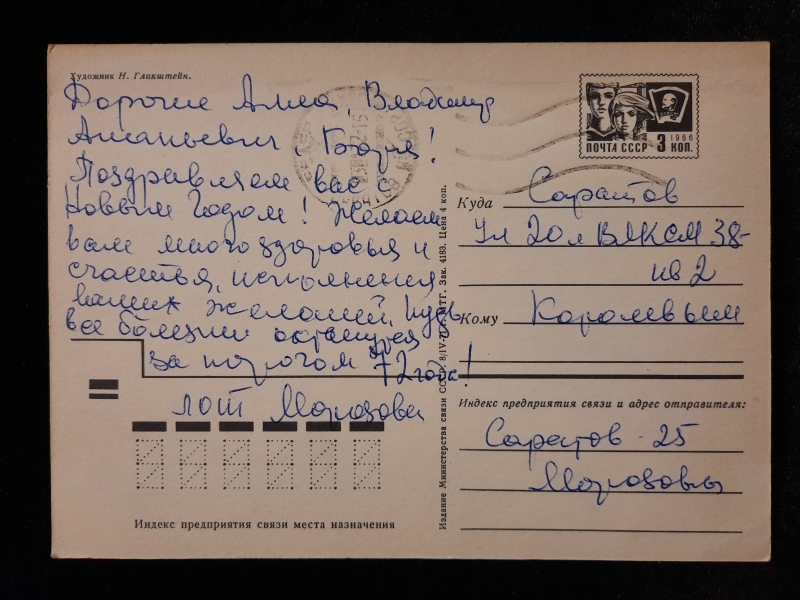 Художник Н. Гликштейн.
Дорогие Алла, Владимир
Ананьевич
Поздравляем вас с
Новым годом! Желаем
вам много здоровья и
счастья, исполнения
ваших желаний. Пусть
все болезни останутся
за порогом 72 года!
Морозовы
Индекс предприятия связи места назначения
Издание Министерства связи СССР. 8/IV-71 г. МТГ. Зак. 4183. Цена 4 коп.
1966
ПОЧТА СССР 3 КОП.
Куда Саратов
Ул 20 л ВЛКСМ 38-
кв 2
Кому Королевым
Индекс предприятия связи и адрес отправителя:
Саратов - 25
Морозовы